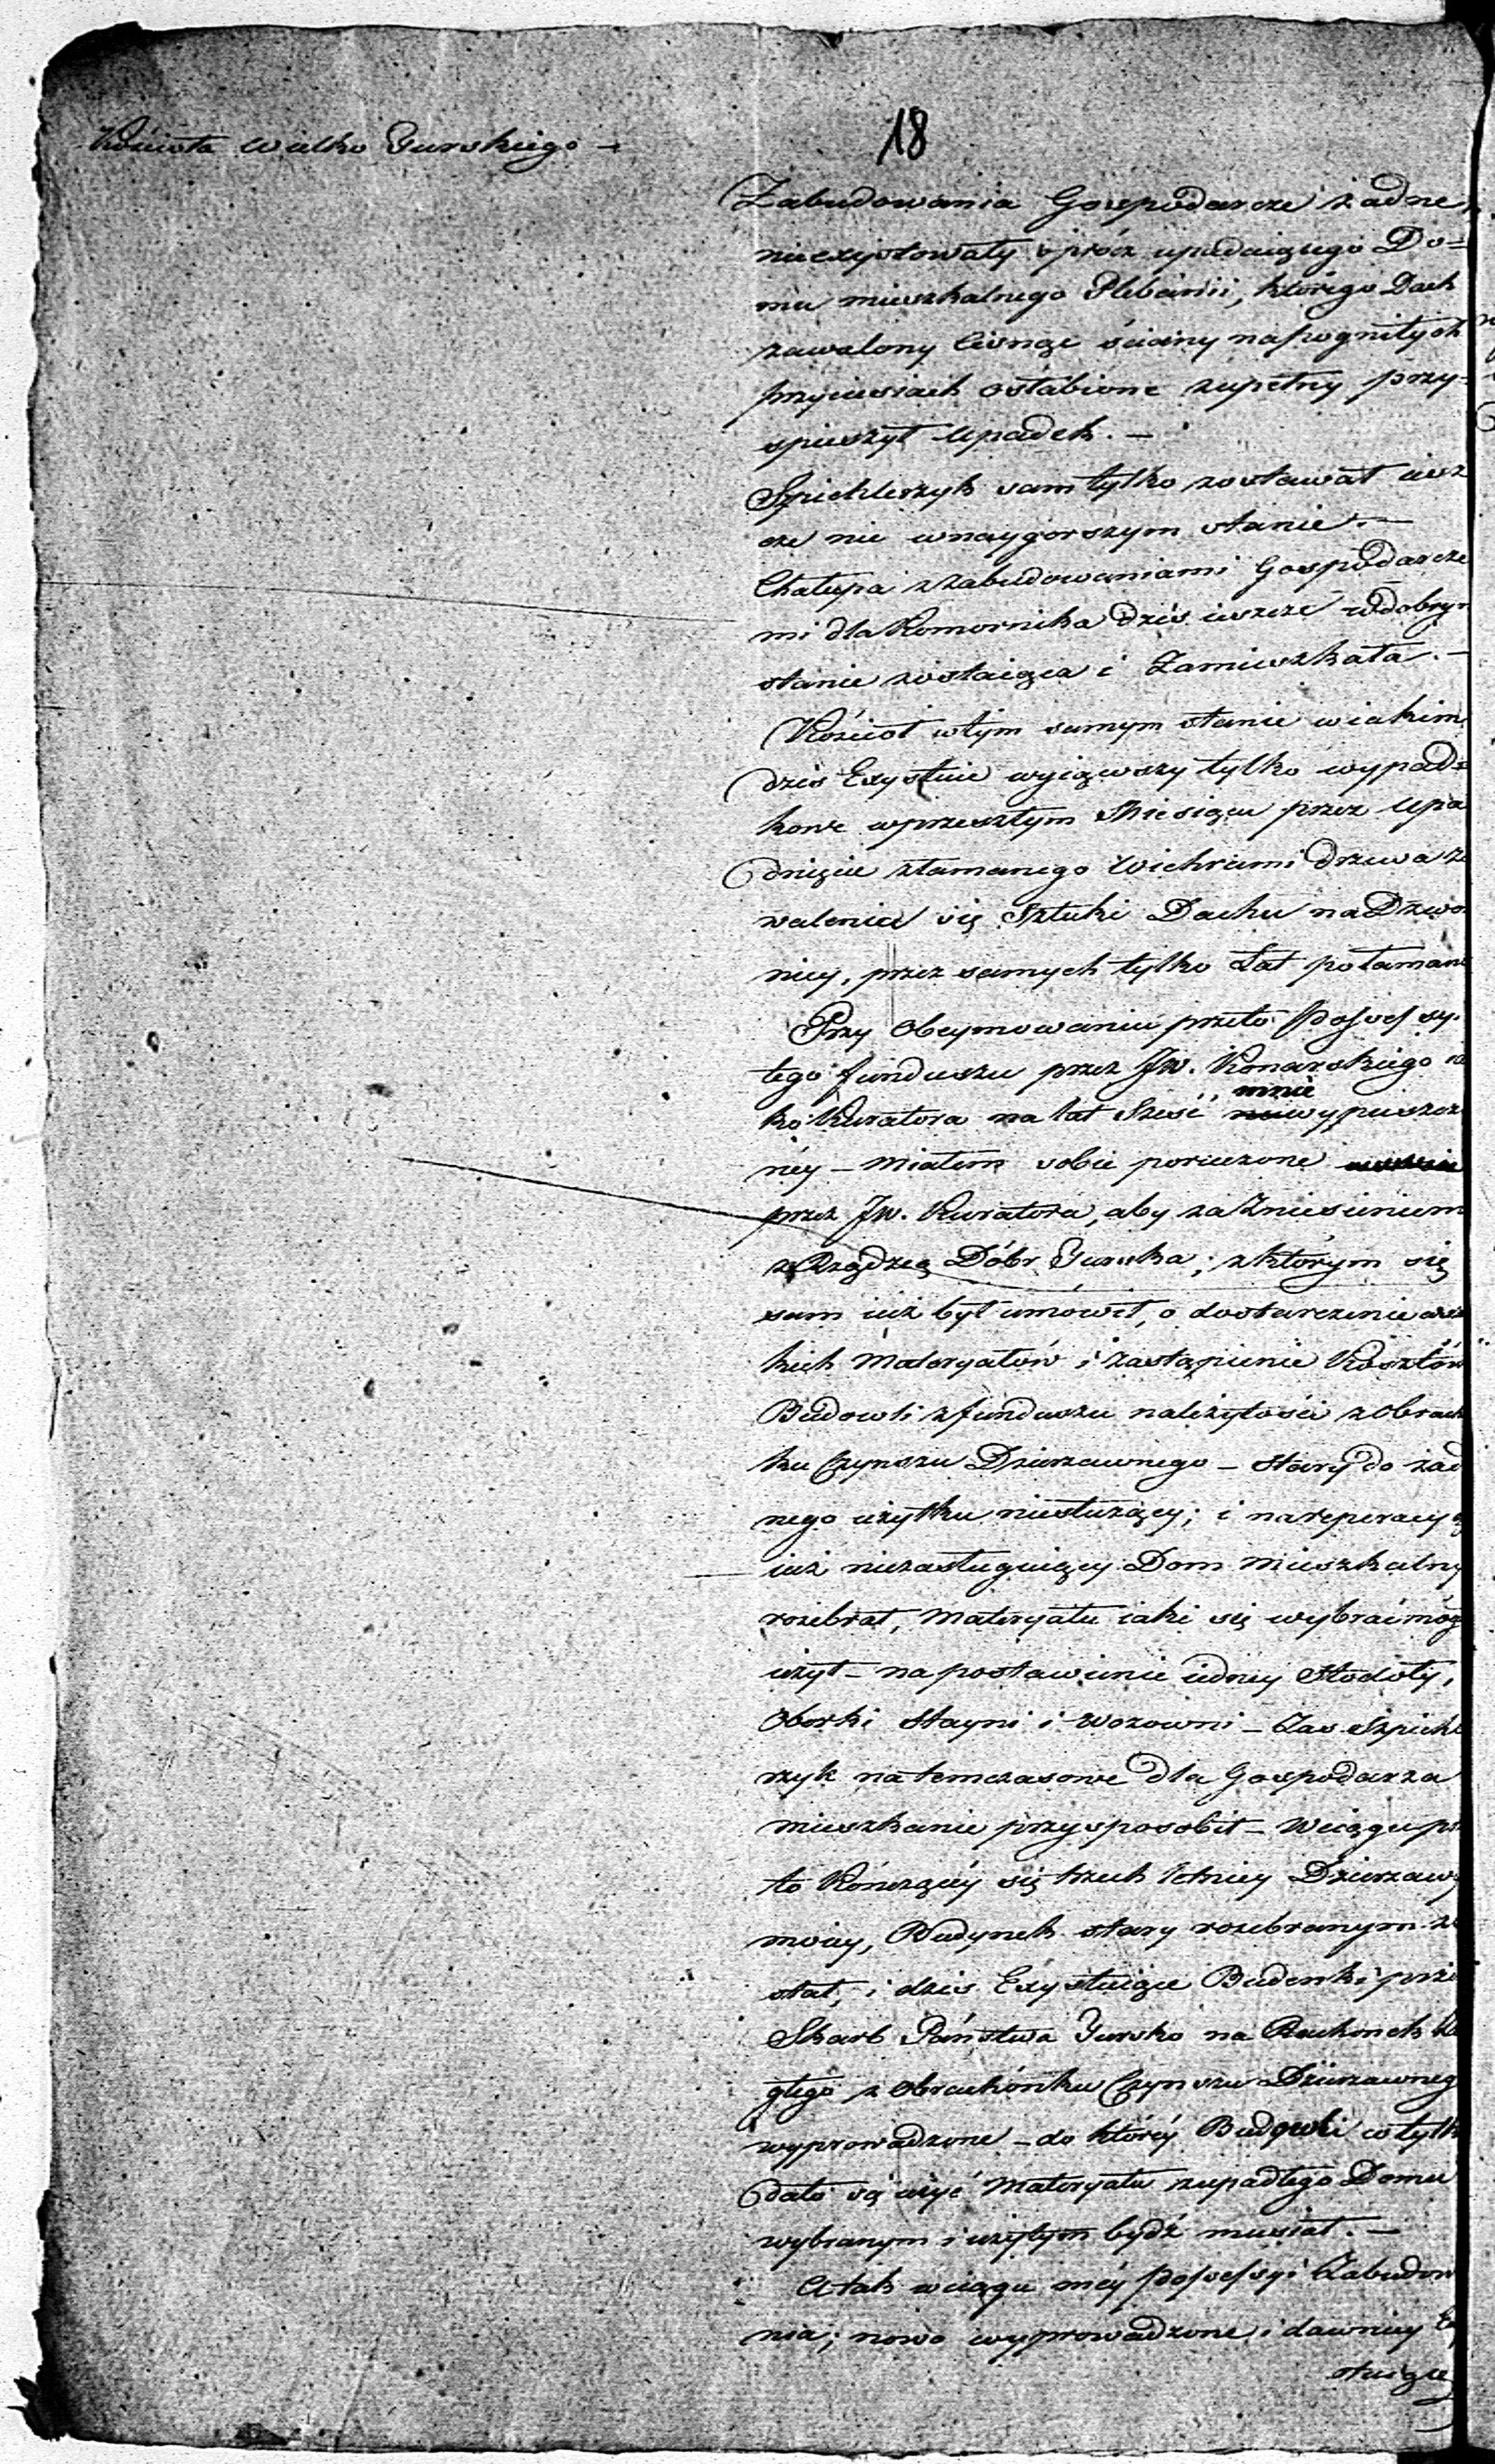 Kościoła Wielko Turskiego –
18
Zabudowania Gospodarcze żadne
nie exystowały oprócz upadaiącego Do=
mu mieszkalnego Plebanii, którego Dach
zawalony ściany na pognitych
przyciesiach osłabione zupełny przy=
spieszył upadek. –
Spichlerzyk sam tylko zostawał iesz
cze nie w naygorszym stanie. –
Chałupa z zabudowaniami Gospodarcze
mi dla Komornika dziś ieszcze w dobrym
stanie zostaiąca i Zamieszkała. –
Kościoł w tym samym stanie w iakim
dziś Exystuie wyiąwszy tylko wypad=
kowe w przeszłym Miesiącu przez upa
dnięcie złamanego Wichrami drzewa za
walenia się Sztuki Dachu na Dzwo
nicy, przez samych tylko Łat połamane
Przy obeymowaniu przeto Possessyi
tego funduszu przez JW. Konarskiego ia
ko Kuratora na lat Sześć mnie wypuszczo
néy – miałem sobie poruczone
przez JW. Kuratora, aby za Zniesieniem
z Rządzcą Dóbr Turska, z którym się
sam iuż był umówił, o dostarczenie wsz
kich Materyałów i zastąpienie Kosztów
Budowli z funduszu należytości z Obrach
ku Czynszu Dzierzawnego – Stary do żad
nego użytku niesłużący, i na reperacyą
iuż niezasługuiący Dom mieszkalny
rozebrał, Materyału iaki się wybrać móg
użył – na postawienie iedney Stodoły,
Oborki Stayni i Wozowni – Zas Szpichl
rzyk na temczasowe dla Gospodarza
mieszkanie przysposobił – W ciągu prze
to Kónczącéy się trzech letniey Dzierzawy
moiey, Budynek stary rozebranym zo
stał, i dziś Exystuiące Budenki przez
Skarb Państwa Tursko na Rachonek
głego z Obrachónku Czynszu Dzierzawneg
wyprowadzone – do któréy Budowli co tylk
dało się użyć Materyału z upadłego Domu
wybranym i użytym bydź musiał. –
A tak w ciągu méy Possessyi Zabudow
nia, nowo wyprowadzone i dawniey Ex
stuiące